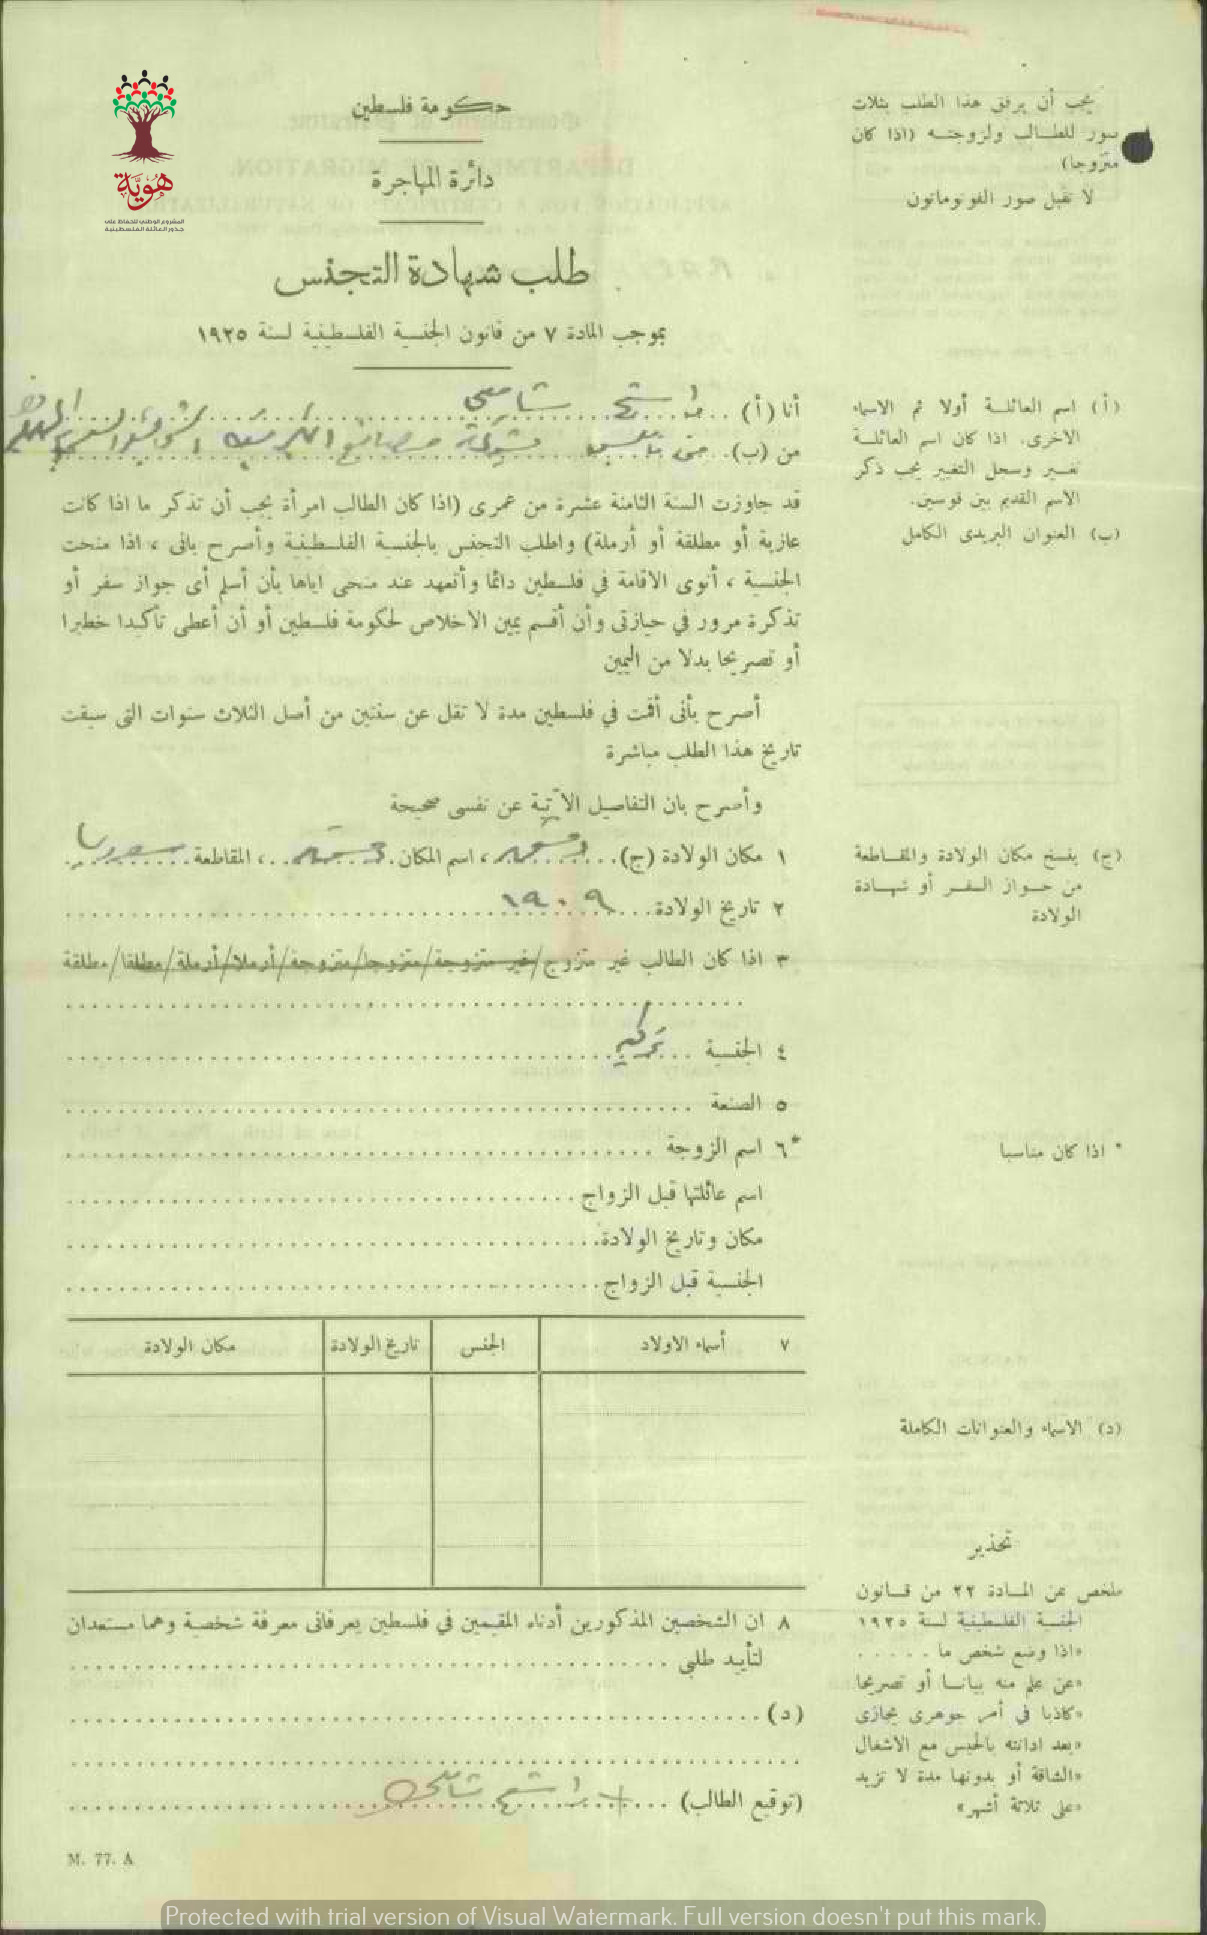 هوية
المشروع الوطني للحفاظ على
جذور العائلة الفلسطينية
حكومة فلسطين
دائرة المهاجرة
طلب شهادة التجنس
بموجب المادة ٧ من قانون الجنسية الفلسطينية لسنة ١٩٢٥
يجب أن يرفق هذا الطلب بثلاث
صور للطالب ولزوجته (اذا كان
متزوجا)
لا تقبل صور الفوتوماتون
(أ) اسم العائلة أولا ثم الاسماء
الاخرى. اذا كان اسم العائلة
تغير وسجل التغيير يجب ذكر
الاسم القديم بين قوسين.
(ب) العنوان البريدى الكامل
أنا (أ) شامي
من (ب) نابلس شركة مصانع
قد جاوزت السنة الثامنة عشرة من عمرى (اذا كان الطالب امرأة يجب أن تذكر ما اذا كانت
عازبة أو مطلقة أو أرملة) واطلب التجنس بالجنسية الفلسطينية وأصرح بانى ، اذا منحت
الجنسية ، أنوى الاقامة في فلسطين دائما وأتعهد عند منحى اياها بأن أسلم أى جواز سفر أو
تذكرة مرور في حيازتى وأن أقسم يمين الاخلاص لحكومة فلسطين أو أن أعطى تأكيدا خطيرا
أو تصريحا بدلا من اليمين
أصرح بأنى أقمت في فلسطين مدة لا تقل عن سنتين من أصل الثلاث سنوات التى سبقت
تاريخ هذا الطلب مباشرة
وأصرح بان التفاصيل الآتية عن نفسى صحيحة
١ مكان الولادة (ج) دمشق ، اسم المكان دمشق ، المقاطعة سوريا
(ج) ينسخ مكان الولادة والمقاطعة
من جواز السفر أو شهادة
الولادة
٢ تاريخ الولادة ١٩٠٩
٣ اذا كان الطالب غير متزوج/غير متزوجة/متزوجا/متزوجة/أرملا/أرملة/مطلقا/مطلقة
٤ الجنسية تركيه
٥ الصنعة
*٦ اسم الزوجة
* اذا كان مناسبا
اسم عائلتها قبل الزواج
مكان وتاريخ الولادة
الجنسية قبل الزواج
٧ أسماء الاولاد الجنس تاريخ الولادة مكان الولادة
(د) الاسماء والعنوانات الكاملة
تحذير
ملخص عن المادة ٢٢ من قانون
الجنسية الفلسطينية لسنة ١٩٢٥
«اذا وضع شخص ما . . . . .
«عن علم منه بيانا أو تصريحا
«كاذبا في أمر جوهرى يجازى
«بعد ادانته بالحبس مع الاشغال
«الشاقة أو بدونها مدة لا تزيد
«على ثلاثة أشهر»
٨ ان الشخصين المذكورين أدناه المقيمين في فلسطين يعرفانى معرفة شخصية وهما مستعدان
لتأييد طلبى
(د)
(توقيع الطالب) راشح شامي
M. 77. A
Protected with trial version of Visual Watermark. Full version doesn't put this mark.